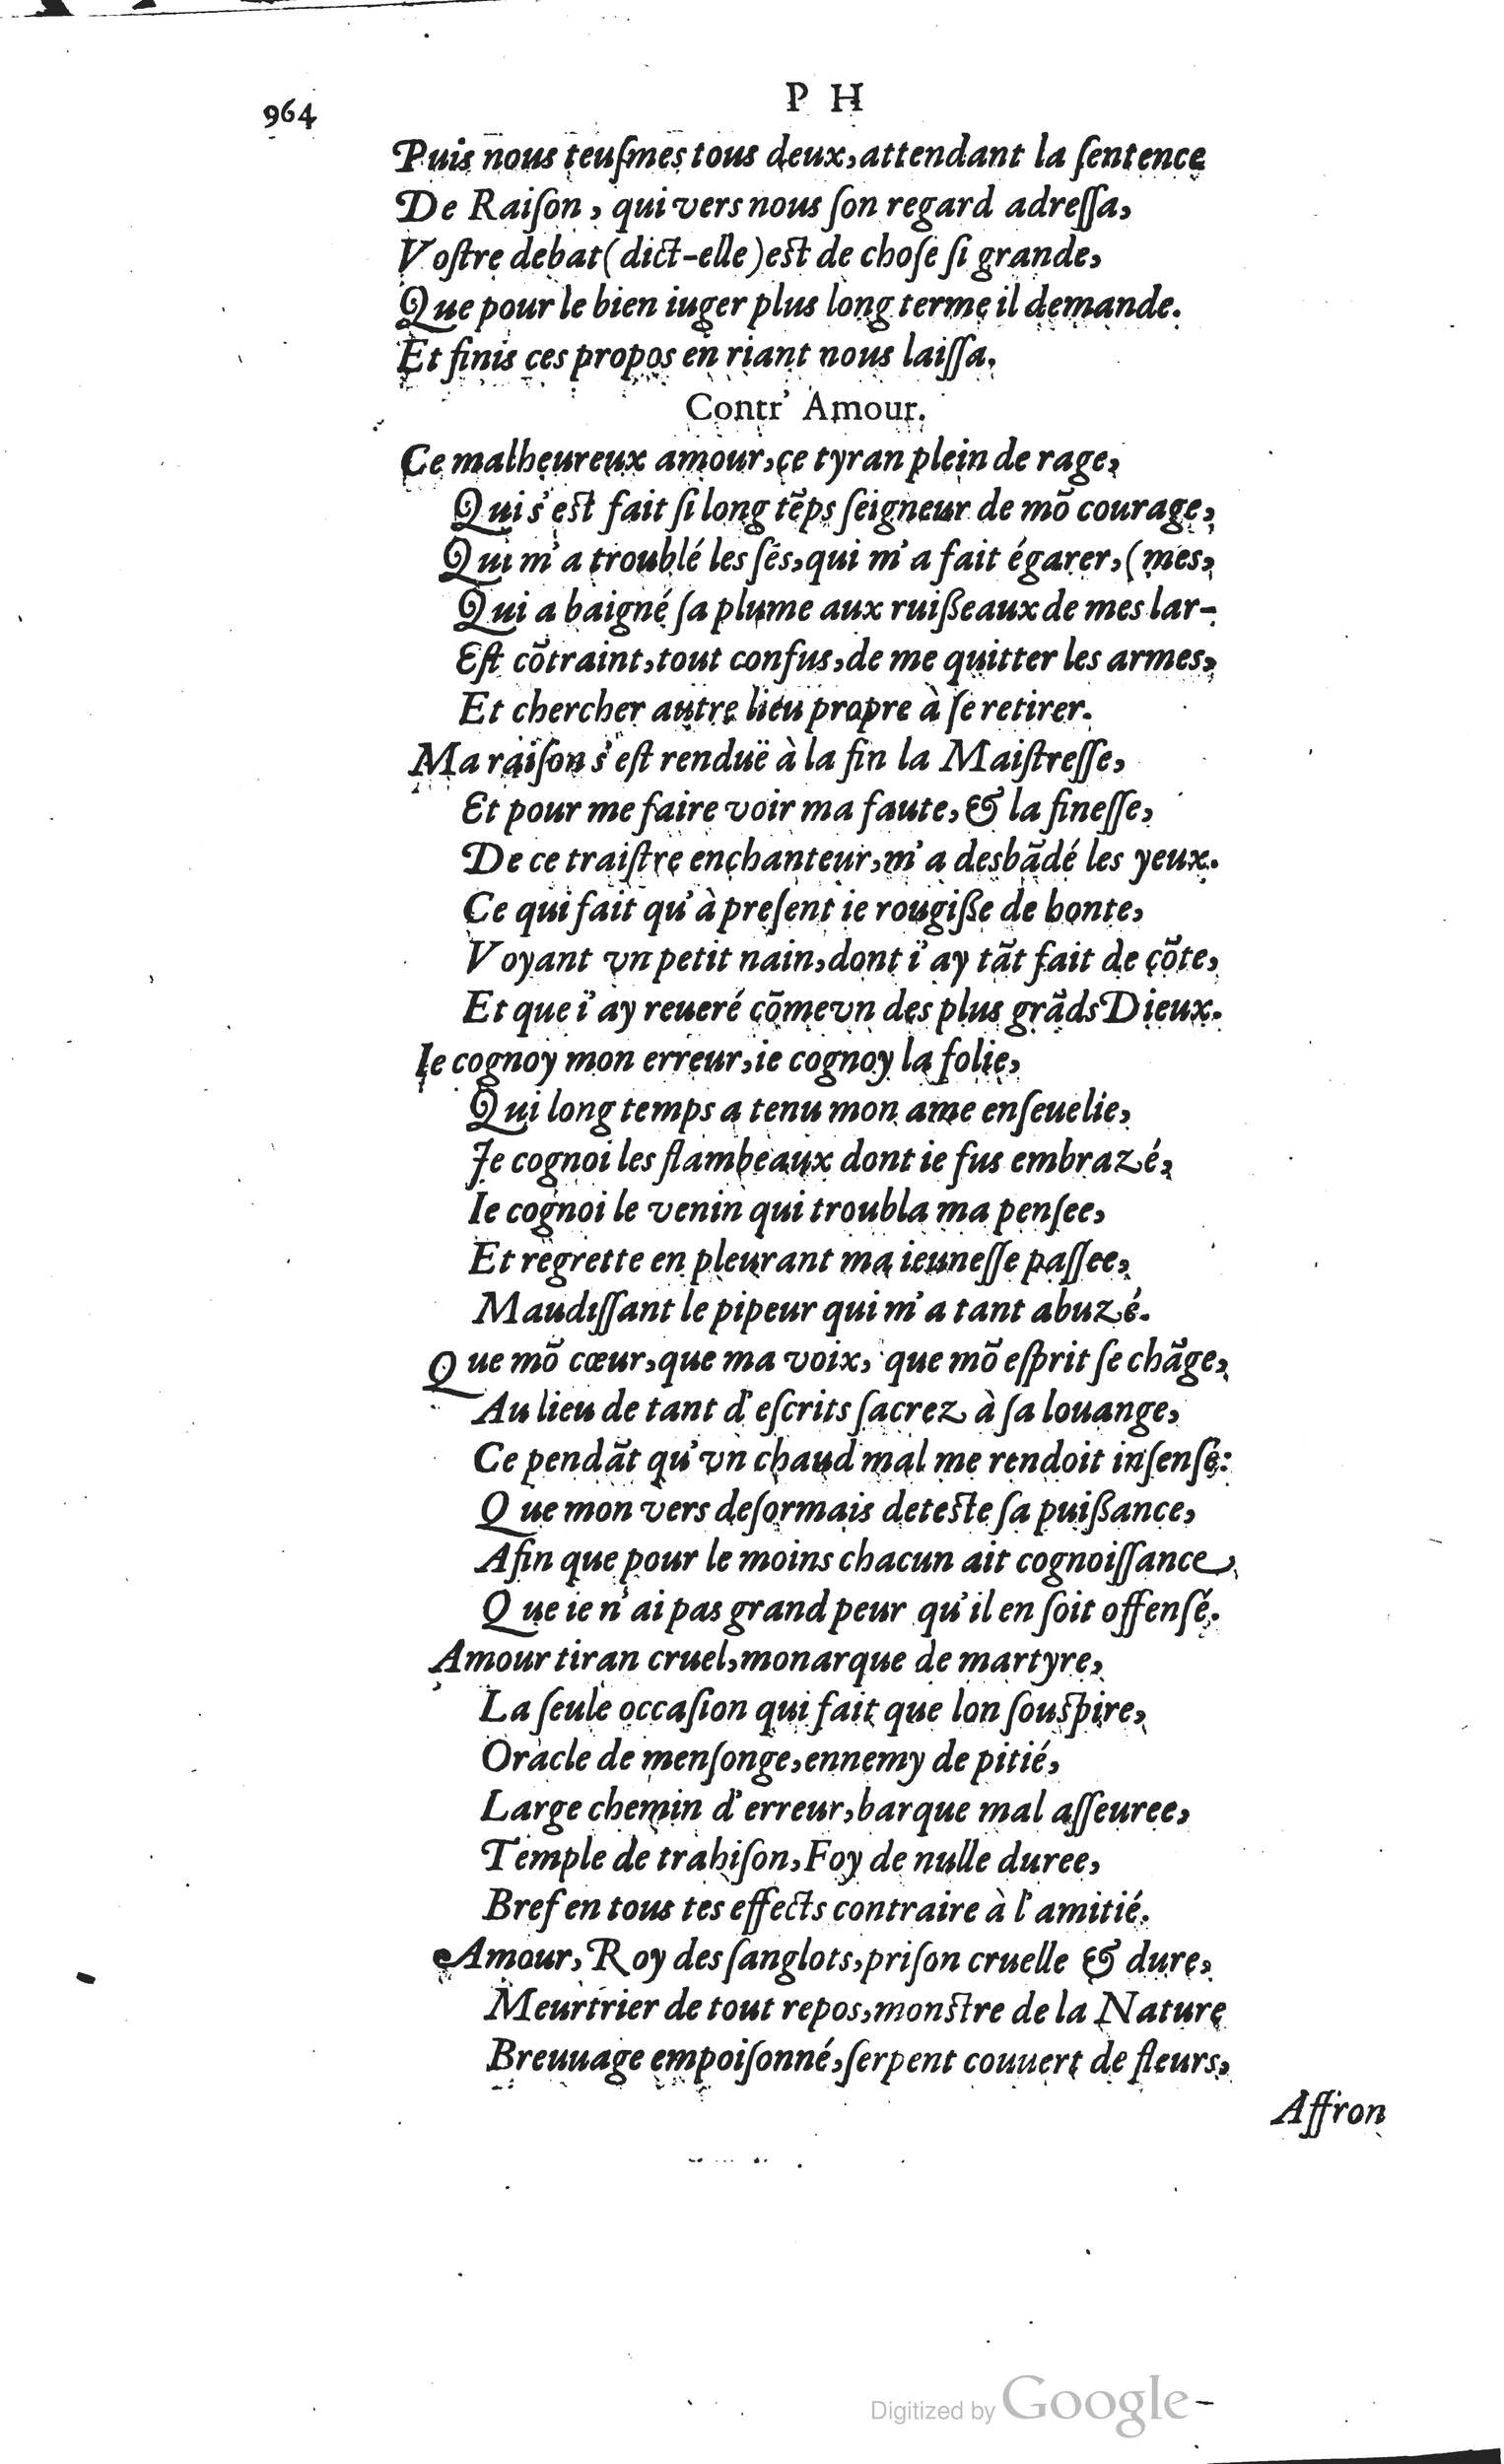 964
P H
Puis nous teuſmes tous deux, attendant la ſentence
De Raiſon, qui vers nous ſon regard adreſſa,
Voſtre debat (dict-elle) eſt de choſe ſi grande,
Que pour le bien iuger plus long terme il demande.
Et finis ces propos en riant nous laiſſa.
Contr' Amour.
Ce malheureux amour, ce tyran plein de rage,
Qui s'eſt fait ſi long tẽps ſeigneur de mõ courage,
Qui m'a troublé les ſẽs, qui m'a fait égarer, (mes,
Qui a baigné ſa plume aux ruißeaux de mes lar-
Eſt cõtraint, tout confus, de me quitter les armes,
Et chercher autre lieu propre à ſe retirer.
Ma raiſon s'eſt renduë à la fin la Maiſtreſſe,
Et pour me faire voir ma faute, & la fineſſe,
De ce traiſtre enchanteur, m'a desbãdé les yeux.
Ce qui fait qu'à preſent ie rougiße de honte,
Voyant vn petit nain, dont i'ay tãt fait de cõte,
Et que i'ay reueré cõme vn des plus grãds Dieux.
Ie cognoy mon erreur, ie cognoy la folie,
Qui long temps a tenu mon ame enſeuelie,
Je cognoi les flambeaux dont ie fus embrazé,
Ie cognoi le venin qui troubla ma penſee,
Et regrette en pleurant ma ieuneſſe paſſee,
Maudiſſant le pipeur qui m'a tant abuzé.
Que mõ cœur, que ma voix, que mõ eſprit ſe chãge,
Au lieu de tant d'eſcrits ſacrez à ſa louange,
Ce pendãt qu'vn chaud mal me rendoit inſenſé:
Que mon vers deſormais deteſte ſa puißance,
Afin que pour le moins chacun ait cognoiſſance,
Que ie n'ai pas grand peur qu'il en ſoit offenſé.
Amour tiran cruel, monarque de martyre,
La ſeule occaſion qui fait que lon ſouſpire,
Oracle de menſonge, ennemy de pitié,
Large chemin d'erreur, barque mal aſſeuree,
Temple de trahiſon, Foy de nulle duree,
Bref en tous tes effects contraire à l'amitié.
Amour, Roy des ſanglots, priſon cruelle & dure,
Meurtrier de tout repos, monſtre de la Nature
Breuuage empoiſonné, ſerpent couuert de fleurs,
Affron
Digitized by Google